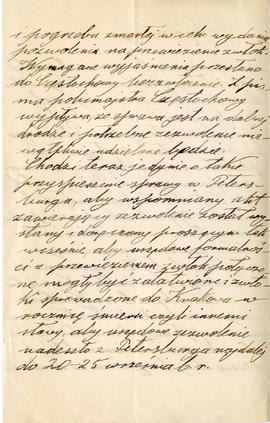 i pogrzebu zmarłych w celu wydania
pozwolenia na przewiezienie zwłok.
Wymagane wyjaśnienia przesłano
do Częstochowy bezzwłocznie. Z pis-
ma policmajstra Częstochowy
wypływa, że sprawa jest na dobrej
drodze i potrzebne zezwolenie nie
wątpliwie udzielone będzie.
Chodzi teraz jedynie o takie
przyspieszenie sprawy w Peters-
burgu, aby wspomniany akt
zawierający zezwolenie został wy-
słany i doręczony proszącym tak
wcześnie, aby urzędowe formalnoś-
ci z przewiezieniem zwłok połączo-
ne mogły być załatwione i zwło-
ki sprowadzone do Krakowa w
rocznicę śmierci czyli innemi
słowy, aby urzędowe zezwolenie
nadeszło z Petersburga najdalej
do 20-25 września b. r.